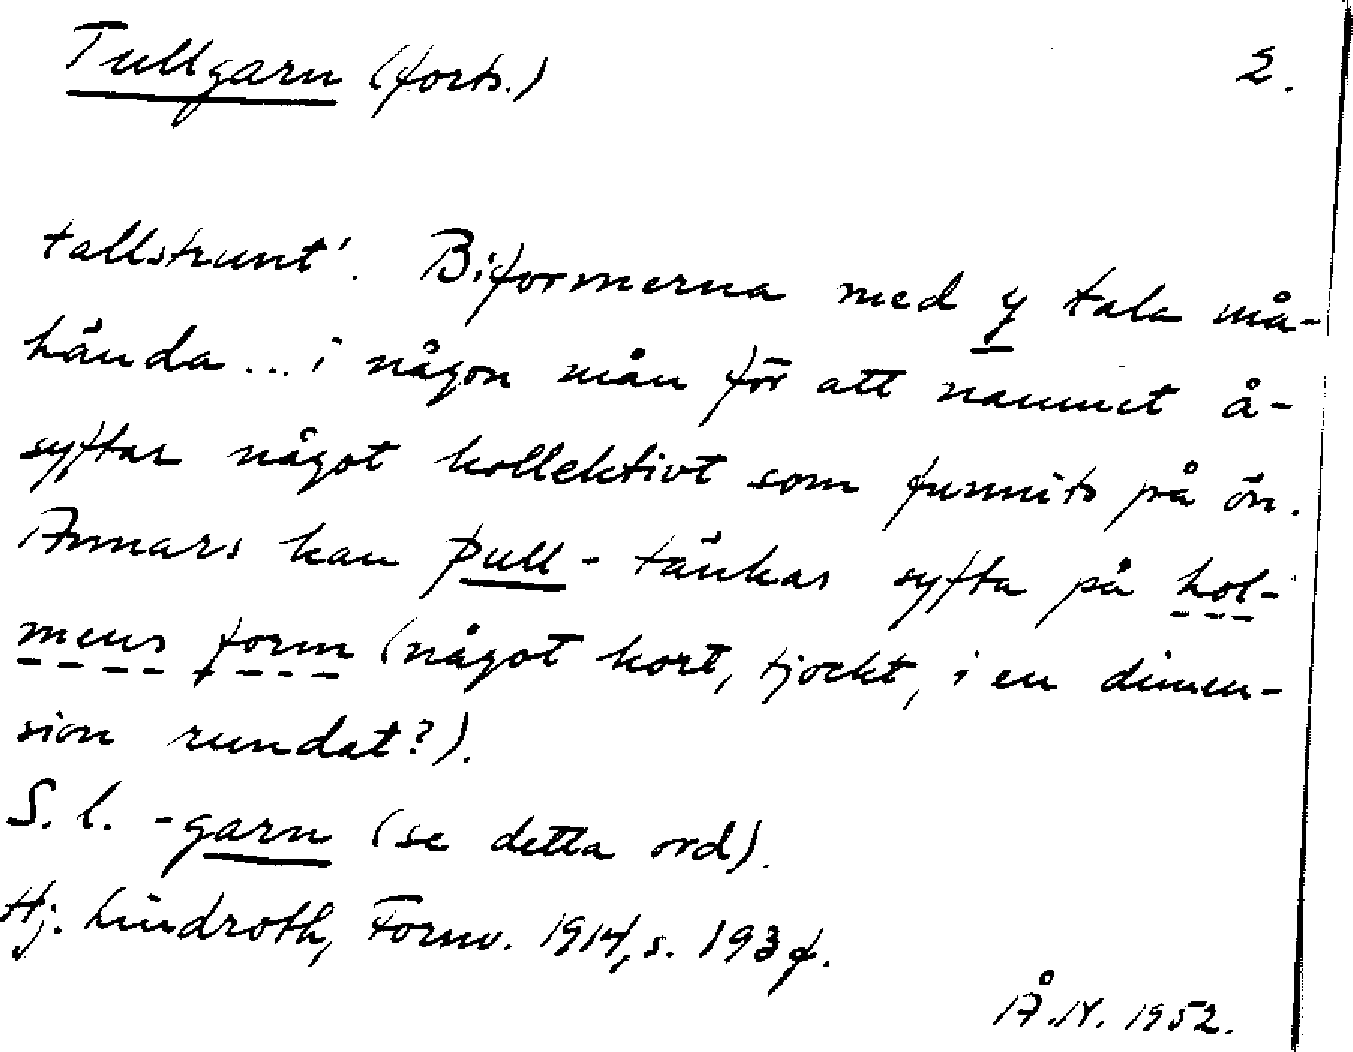 Tullgarn (forts.) 2.
tallstrunt'. Biformerna med y tala må-
hända... i någon mån för att namnet å-
syftar något kollektivt som funnits på ön.
Annars kan þull- tänkas syfta på hol-
mens form (något kort, tjockt, i en dimen-
sion rundat?).
S. l. -garn (se detta ord).
Hj. Lindroth, Fornv. 1914, s. 193 f.
Å.N. 1952.